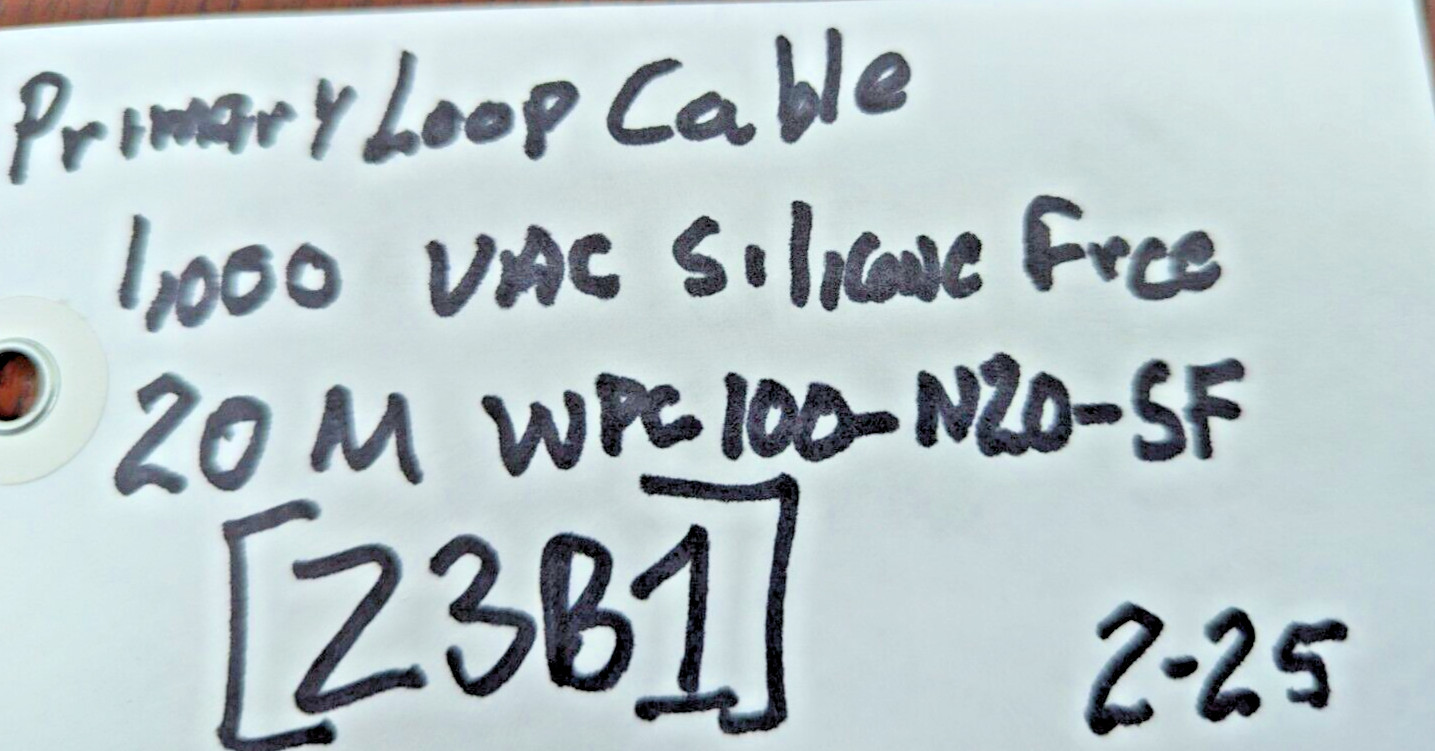 Primary Loop Cable
1,000 VAC Silicone Free
20 M WPC100-N20-SF
[Z3B1]
2-25